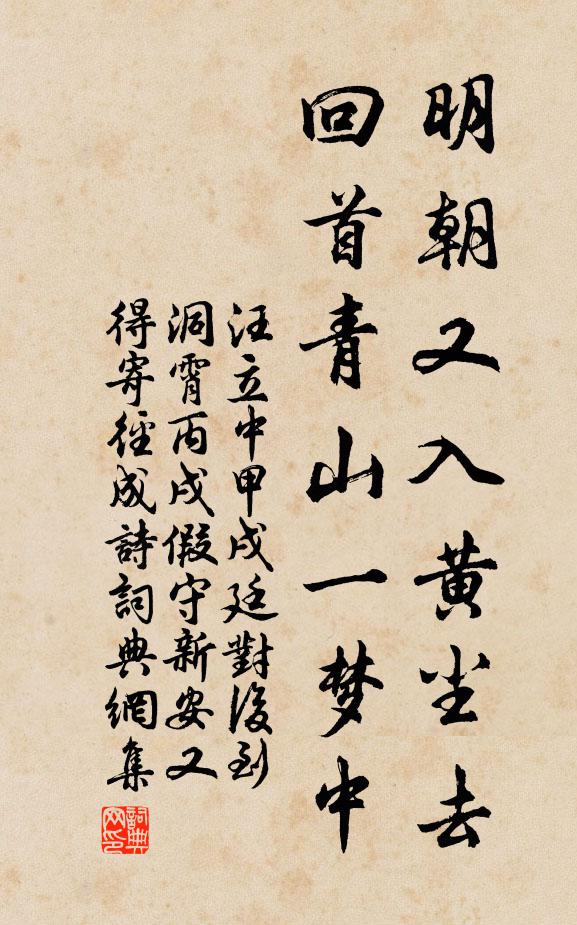 明朝又入黄尘去
回首青山一梦中
汪立中甲戌廷對後到
洞霄丙戌假守新安又
得寄徑成詩詞典網集
詞典网印